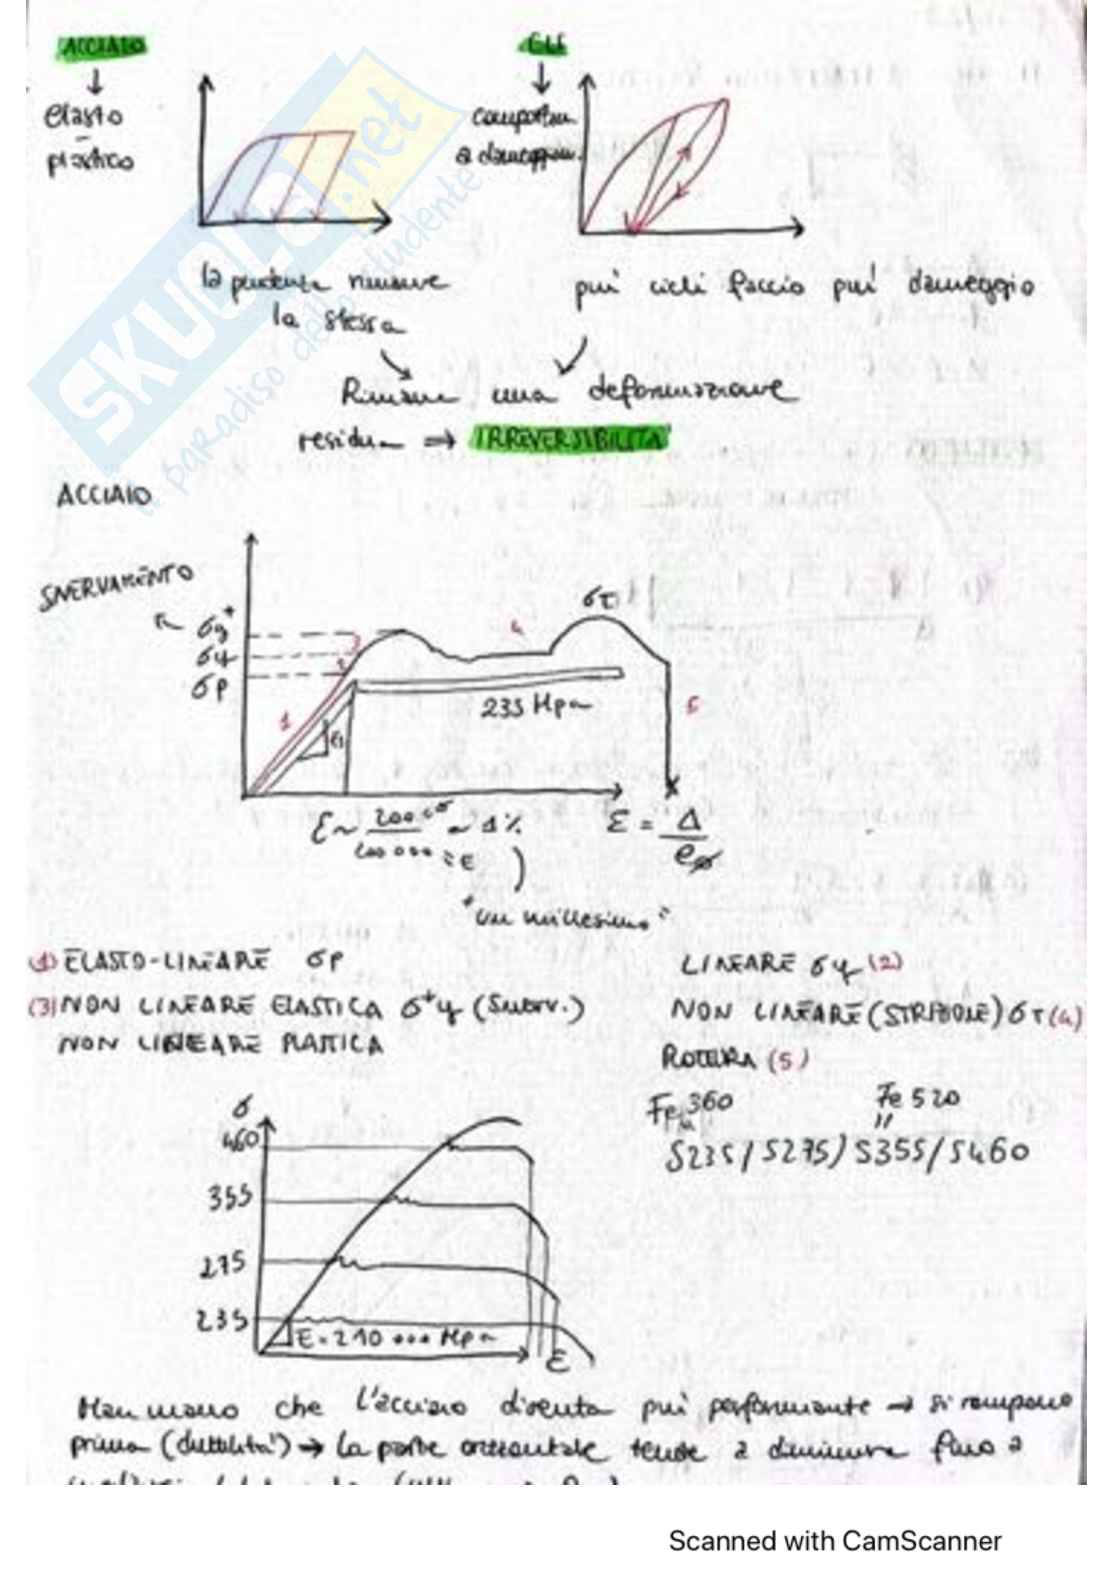 ACCIAIO
elasto
-
plastico
comportam.
a danneggiam.
la pendenza rimane
la stessa
più cicli faccio più danneggio
Rimane una deformazione
residua ⇒ IRREVERSIBILITA'
ACCIAIO
SNERVAMENTO
σy+
σy
σp
στ
1
2
3
4
5
235 Mpa
E
ε = Δ
ℓ0
"un millesimo"
(1) ELASTO-LINEARE σp
LINEARE σy (2)
(3) NON LINEARE ELASTICA σ+y (Snerv.)
NON LINEARE (STRIZIONE) στ (4)
NON LINEARE PLASTICA
ROTTURA (5)
Fe 360 Fe 520
"
S235/S275/S355/S460
σ
460
355
275
235
E = 210 000 Mpa
ε
Man mano che l'acciaio diventa più performante → si rompono
prima (duttilità) → la parte orizzontale tende a diminuire fino a
SKUOLA.net
il paradiso dello studente
Scanned with CamScanner